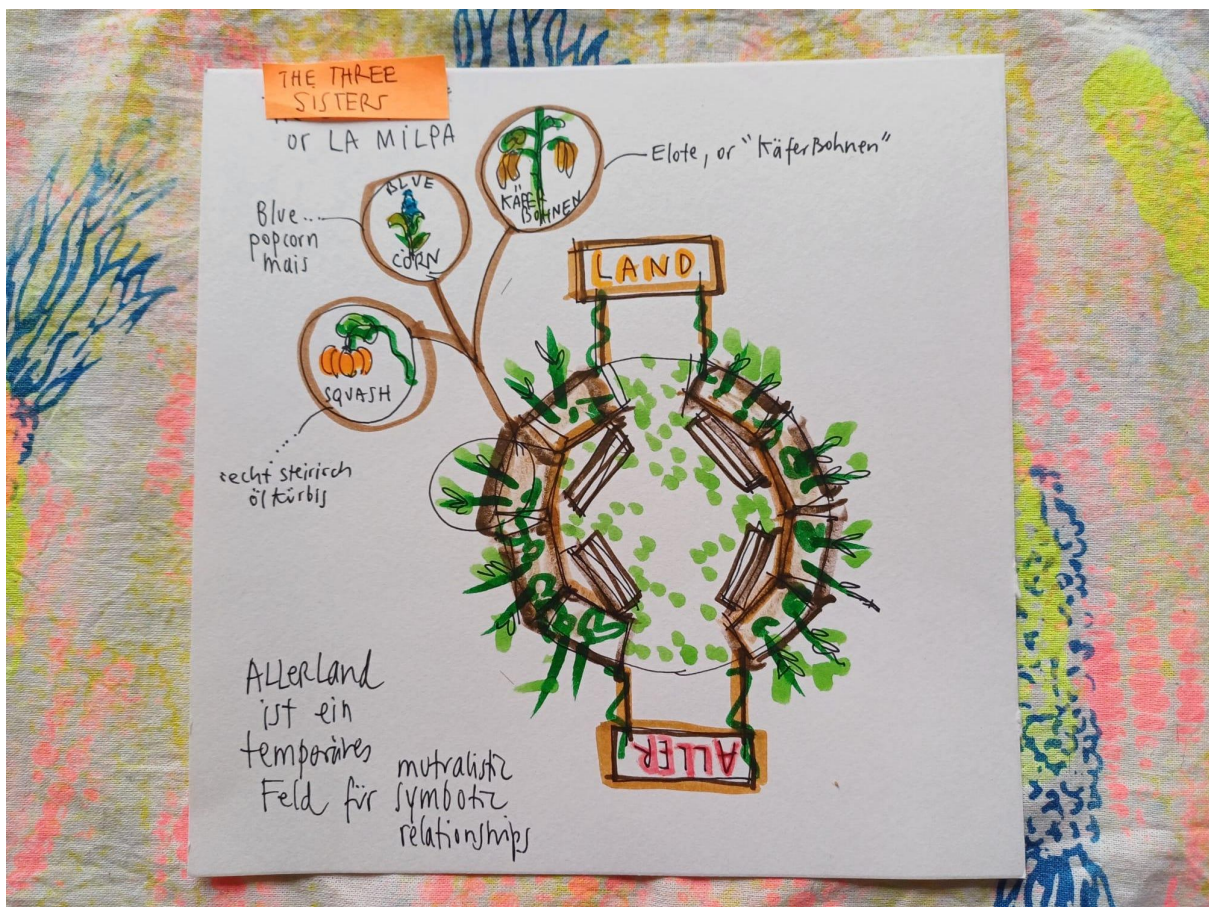 THE THREE
SISTERS
or LA MILPA
Elote, or "KäferBohnen"
KÄFER
BOHNEN
BLUE
CORN
Blue...
popcorn
mais
SQUASH
recht steirisch
ölkürbis
LAND
ALLER
ALLERLAND
ist ein
temporäres
Feld für
mutralistic
symbotic
relationships